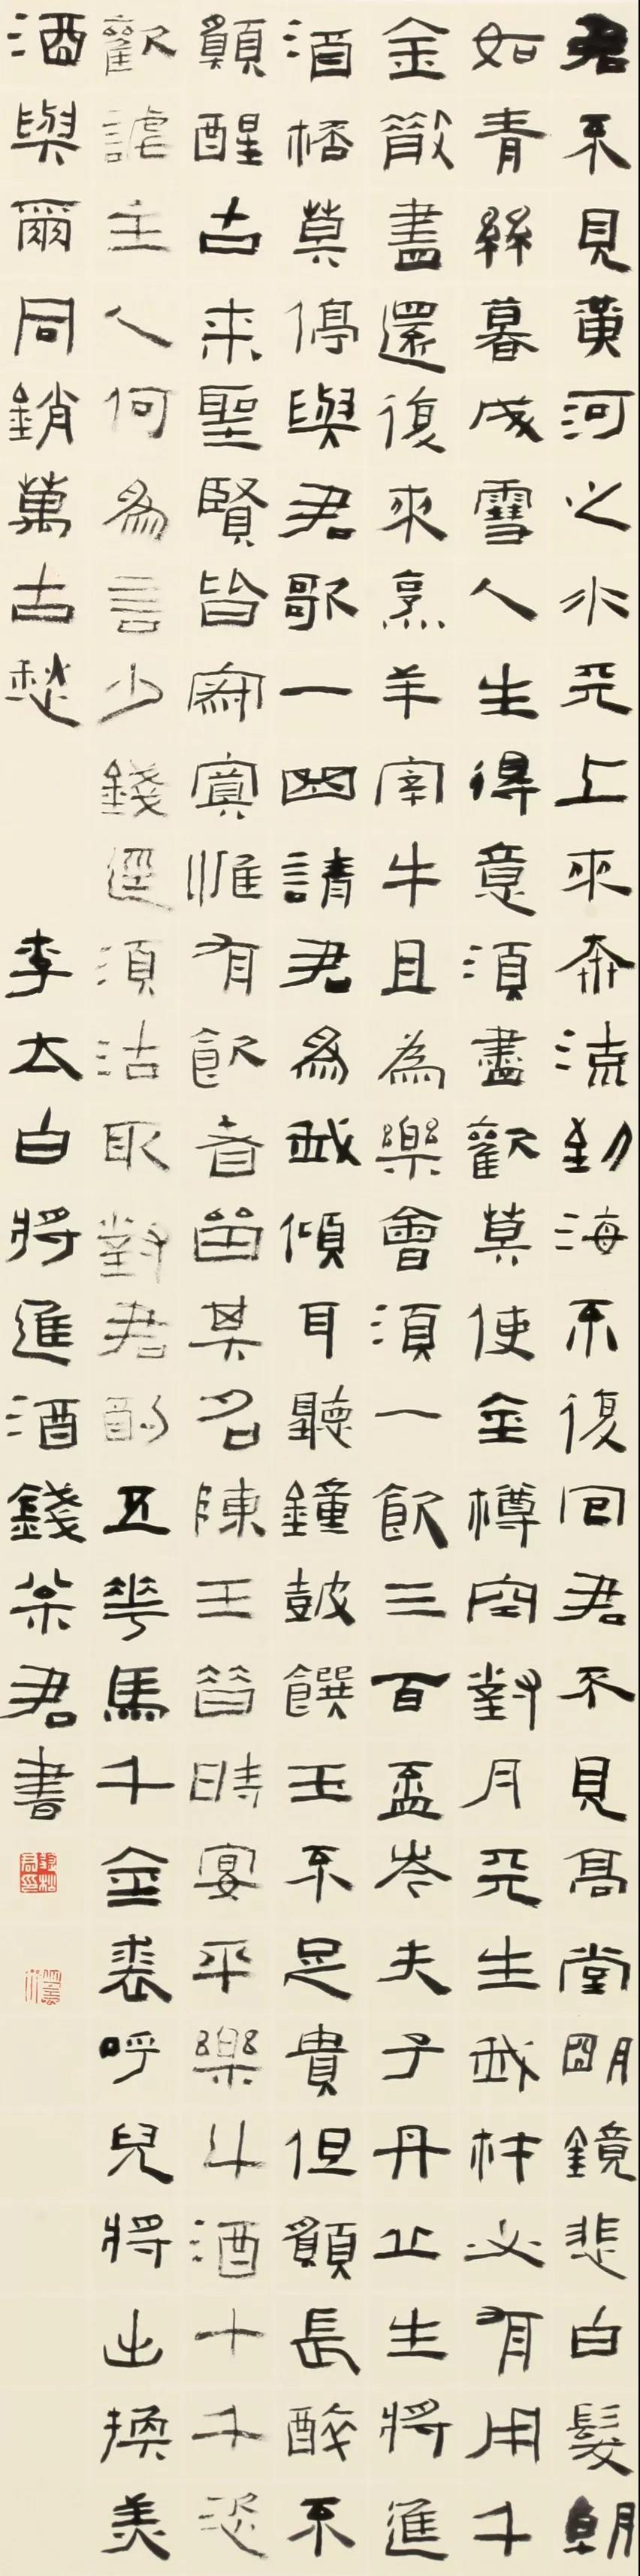 君不見黃河之水天上來奔流到海不復回君不見高堂明鏡悲白髮朝
如青絲暮成雪人生得意須盡歡莫使金樽空對月天生我材必有用千
金散盡還復來烹羊宰牛且為樂會須一飲三百盃岑夫子丹丘生將進
酒桮莫停與君歌一曲請君為我傾耳聽鐘鼓饌玉不足貴但願長醉不
願醒古來聖賢皆寂寞惟有飲者留其名陳王昔時宴平樂斗酒十千恣
歡謔主人何為言少錢逕須沽取對君酌五花馬千金裘呼兒將出換美
酒與爾同銷萬古愁 李太白將進酒錢枀君書